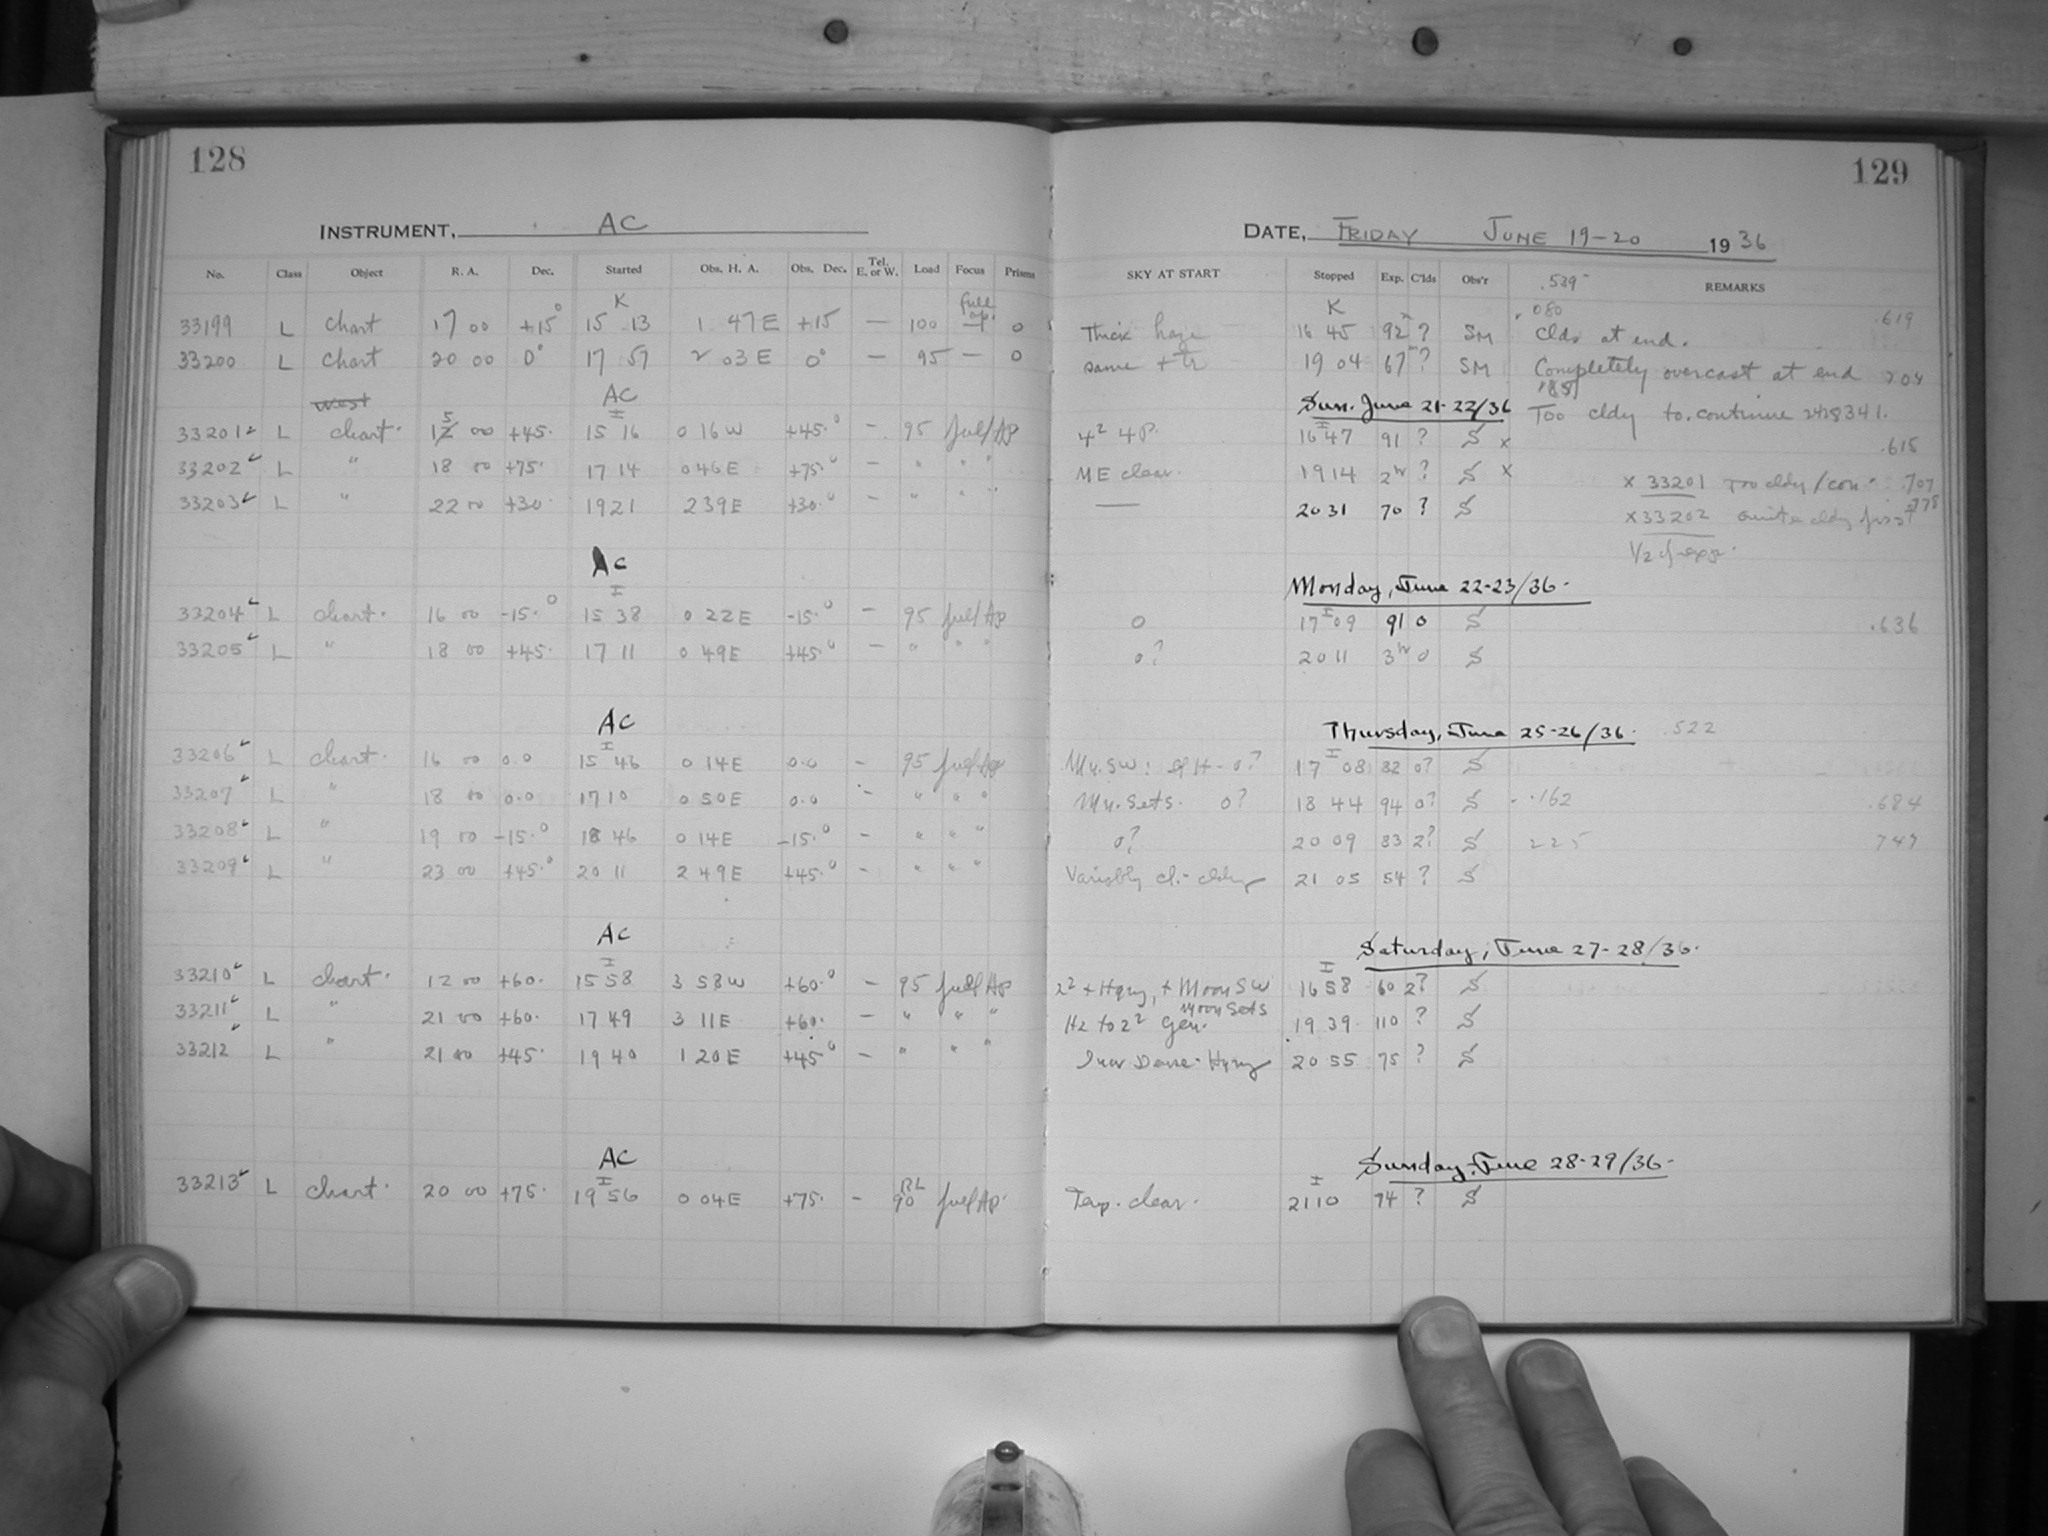 128
INSTRUMENT, AC
No. Class Object R. A. Dec. Started Obs. H. A. Obs. Dec. Tel. E. or W. Load Focus Prisms
K full ap.
33199 L chart 17 00 +15° 15 13 1 47 E +15 — 100 — 0
33200 L chart 20 00 0° 17 57 2 03 E 0° — 95 — 0
west AC
I
33201 L chart. 15 00 +45. 15 16 0 16 W +45.° - 95 full Ap
33202 L " 18 00 +75. 17 14 0 46 E +75.° - " " "
33203 L " 22 00 +30. 19 21 2 39 E +30.° - " " "
AC
I
33204 L chart. 16 00 -15.° 15 38 0 22 E -15.° - 95 full Ap
33205 L " 18 00 +45. 17 11 0 49 E +45.° - " " "
AC
I
33206 L chart. 16 00 0.0 15 46 0 14 E 0.0 - 95 full Ap
33207 L " 18 00 0.0 17 10 0 50 E 0.0 - " " "
33208 L " 19 00 -15.° 18 46 0 14 E -15.° - " " "
33209 L " 23 00 +45.° 20 11 2 49 E +45.° - " " "
AC
I
33210 L chart. 12 00 +60. 15 58 3 58 W +60.° - 95 full Ap
33211 L " 21 00 +60. 17 49 3 11 E +60. - " " "
33212 L " 21 00 +45. 19 40 1 20 E +45.° - " " "
AC
I
33213 L chart. 20 00 +75. 19 56 0 04 E +75. - RL 90 full Ap.
129
DATE, FRIDAY JUNE 19-20 1936
SKY AT START Stopped Exp. C'lds Obs'r .539 REMARKS
K .080 .619
Thick haze 16 45 92m ? SM Clds at end.
same + 19 04 67m ? SM Completely overcast at end 204
Sun. June 21-22/36 Too cldy to continue 2428341.
I
4² 4P. 16 47 91 ? S x .615
ME clear. 19 14 2h ? S x x 33201 Too cldy/con. 707
— 20 31 70 ? S x 33202 quite cldy first 778
1/2 of expr.
Monday, June 22-23/36.
I
0 17 09 91 0 S .636
0? 20 11 3h 0 S
Thursday, June 25-26/36. .522
I
Mn. SW: 0? 17 08 82 0? S
Mn. Sets. 0? 18 44 94 0? S .162 .684
0? 20 09 83 2? S 225 747
Variably cl.- cldy 21 05 54 ? S
Saturday, June 27-28/36.
I
2² + Hazy, + Moon SW 16 58 60 2? S
Moon Sets
Hz to 2² Gen. 19 39 110 ? S
Dense - Hazy 20 55 75 ? S
Sunday, June 28-29/36.
I
Temp. clear. 21 10 74 ? S